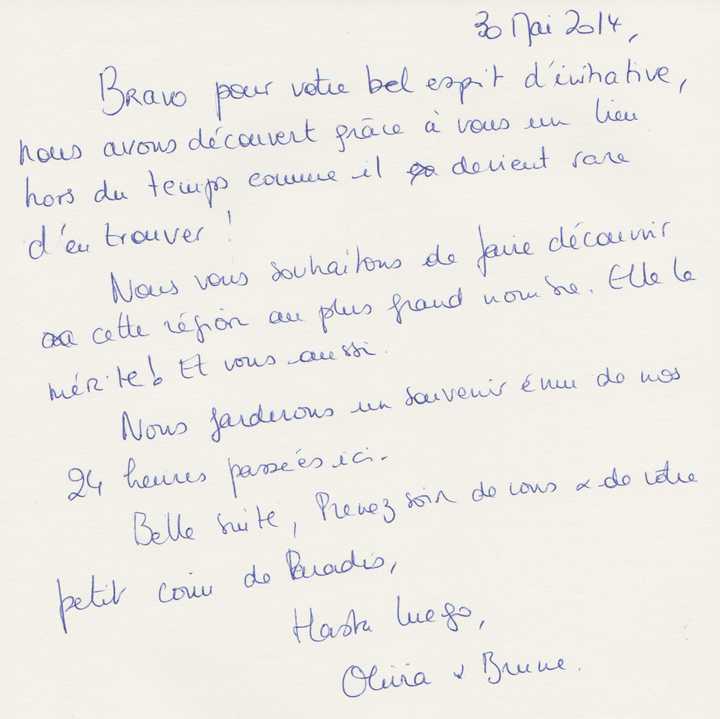 30 Mai 2014,
Bravo pour votre bel esprit d'initiative,
nous avons découvert grâce à vous un lieu
hors du temps comme il devient rare
d'en trouver !
Nous vous souhaitons de faire découvrir
cette région au plus grand nombre. Elle le
mérite ! Et vous aussi.
Nous garderons un souvenir ému de nos
24 heures passées ici.
Belle suite, Prenez soin de vous & de votre
petit coin de Paradis,
Hasta luego,
Olivia & Brune.